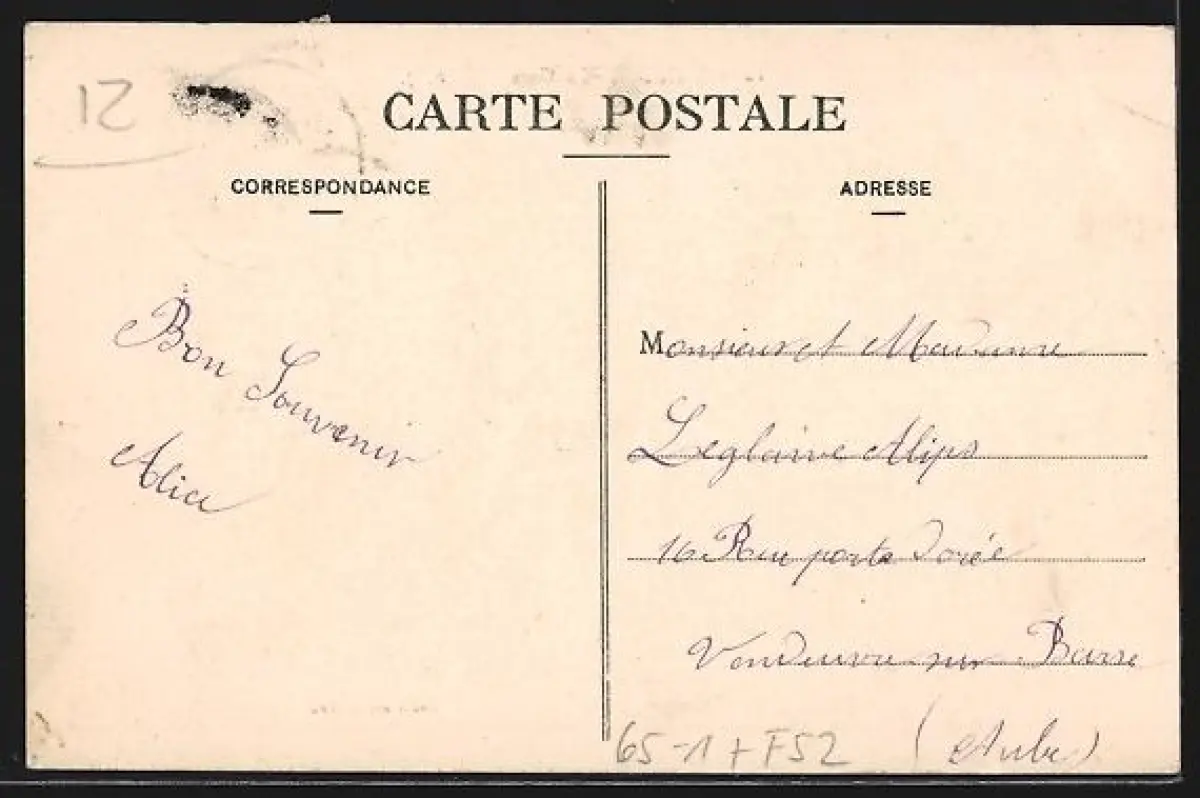 21
CARTE POSTALE
CORRESPONDANCE
Bon Souvenir
Alice
ADRESSE
Monsieur et Madame
Leglaive Alips
16 Rue porte dorée
Vendeuvre sur Barse
(Aube)
65-1 + F52